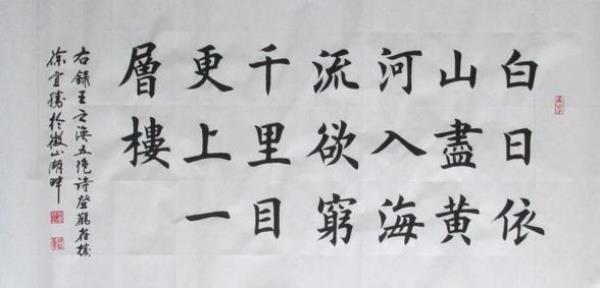 白日依
山盡黄
河入海
流欲窮
千里目
更上一
層樓
右録王之渙五絶詩登鸛雀樓
徐宜勝於微山湖畔